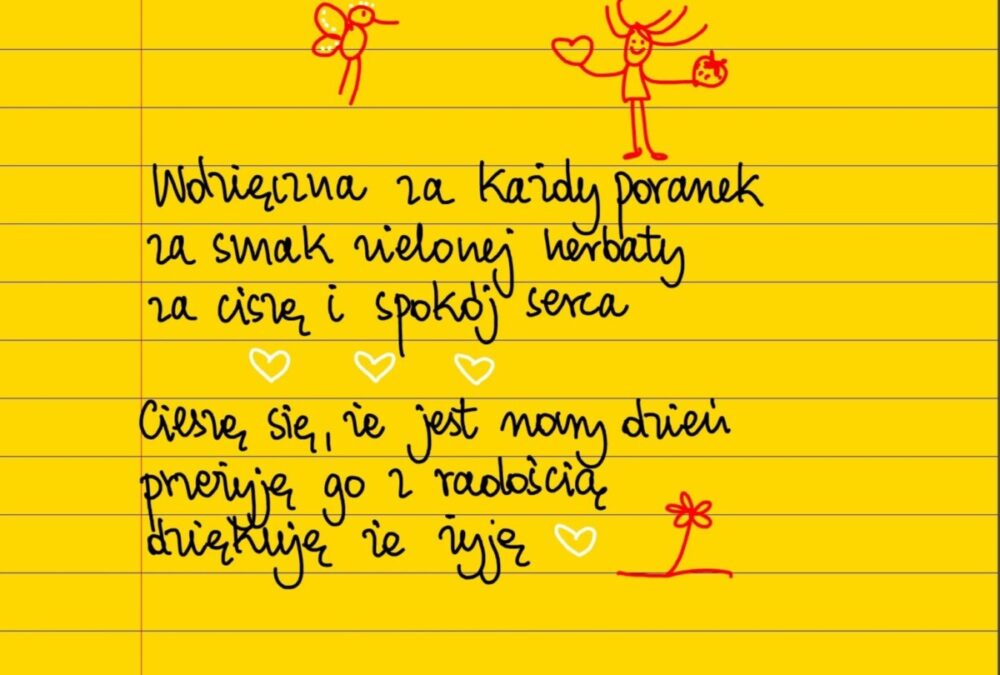 Wdzięczna za każdy poranek
za smak zielonej herbaty
za ciszę i spokój serca
Cieszę się, że jest nowy dzień
przeżyję go z radością
dziękuję że żyję